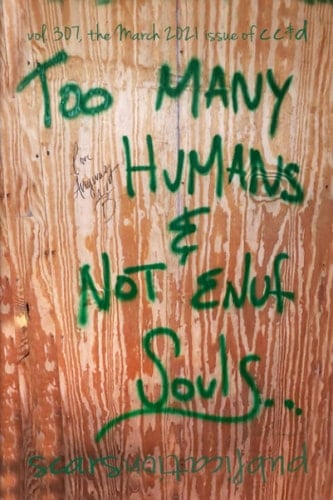 vol. 307, the March 2021 issue of cc&d
Too MANY
HUMANS
&
NOT ENUF
Souls...
scars publication